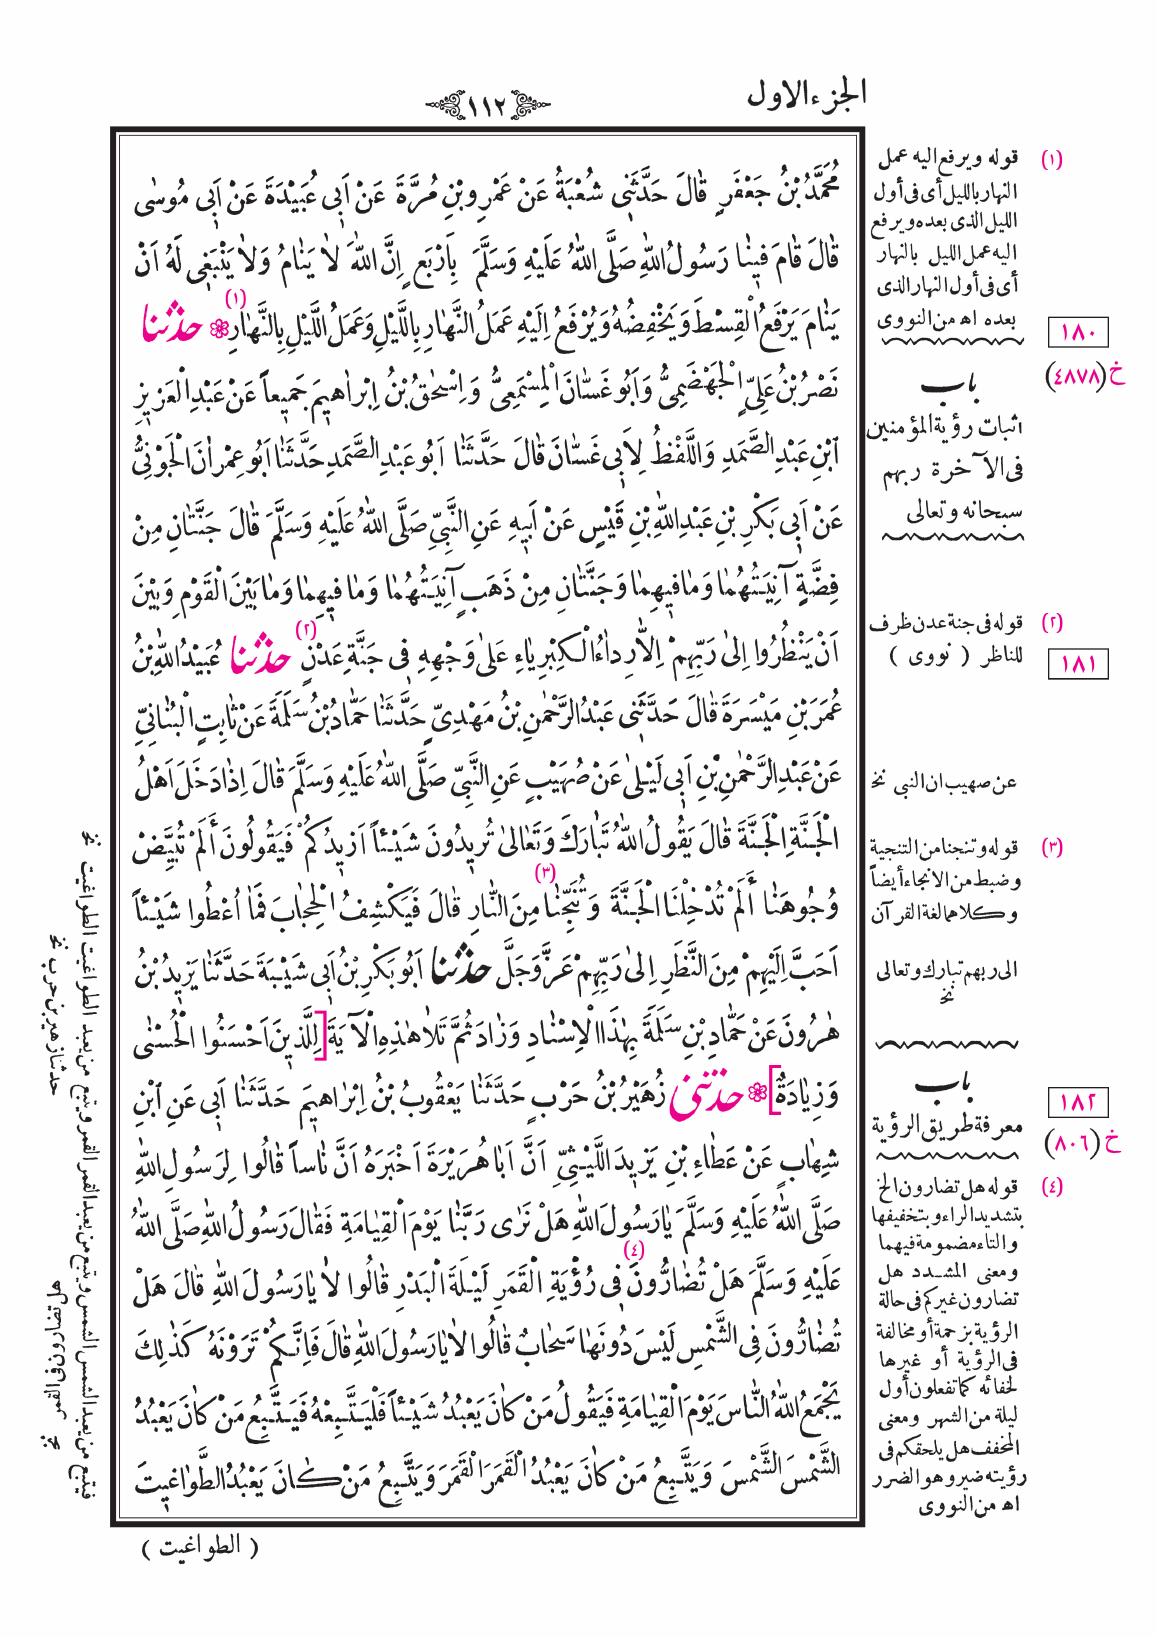 الجزء الاول
١١٢
مُحَمَّدُ بْنُ جَعْفَرٍ قَالَ حَدَّثَنِى شُعْبَةُ عَنْ عَمْرِو بْنِ مُرَّةَ عَنْ اَبِى عُبَيْدَةَ عَنْ اَبِى مُوسٰى
قَالَ قَامَ فِينَا رَسُولُ اللّٰهِ صَلَّى اللّٰهُ عَلَيْهِ وَسَلَّمَ بِاَرْبَعٍ اِنَّ اللّٰهَ لَا يَنَامُ وَلَا يَنْبَغِى لَهُ اَنْ
يَنَامَ يَرْفَعُ الْقِسْطَ وَيَخْفِضُهُ وَيُرْفَعُ اِلَيْهِ عَمَلُ النَّهَارِ بِاللَّيْلِ وَعَمَلُ اللَّيْلِ بِالنَّهَارِ (١) ❁ حدثنا
نَصْرُ بْنُ عَلِىٍّ الْجَهْضَمِىُّ وَاَبُو غَسَّانَ الْمِسْمَعِىُّ وَ اِسْحٰقُ بْنُ اِبْرَاهِيمَ جَمِيعاً عَنْ عَبْدِ الْعَزِيزِ
ابْنِ عَبْدِ الصَّمَدِ وَاللَّفْظُ لِاَبِى غَسَّانَ قَالَ حَدَّثَنَا اَبُو عَبْدِ الصَّمَدِ حَدَّثَنَا اَبُو عِمْرَانَ الْجَوْنِىُّ
عَنْ اَبِى بَكْرِ بْنِ عَبْدِ اللّٰهِ بْنِ قَيْسٍ عَنْ اَبِيهِ عَنِ النَّبِىِّ صَلَّى اللّٰهُ عَلَيْهِ وَسَلَّمَ قَالَ جَنَّتَانِ مِنْ
فِضَّةٍ آنِيَتُهُمَا وَمَا فِيهِمَا وَجَنَّتَانِ مِنْ ذَهَبٍ آنِيَتُهُمَا وَمَا فِيهِمَا وَمَا بَيْنَ الْقَوْمِ وَبَيْنَ
اَنْ يَنْظُرُوا اِلىٰ رَبِّهِمْ اِلَّا رِدَاءُ الْكِبْرِيَاءِ عَلىٰ وَجْهِهِ فِى جَنَّةِ عَدْنٍ (٢) حدثنا عُبَيْدُ اللّٰهِ بْنُ
عُمَرَ بْنِ مَيْسَرَةَ قَالَ حَدَّثَنِى عَبْدُ الرَّحْمٰنِ بْنُ مَهْدِىٍّ حَدَّثَنَا حَمَّادُ بْنُ سَلَمَةَ عَنْ ثَابِتٍ الْبُنَانِىِّ
عَنْ عَبْدِ الرَّحْمٰنِ بْنِ اَبِى لَيْلىٰ عَنْ صُهَيْبٍ عَنِ النَّبِىِّ صَلَّى اللّٰهُ عَلَيْهِ وَسَلَّمَ قَالَ اِذَا دَخَلَ اَهْلُ
الْجَنَّةِ الْجَنَّةَ قَالَ يَقُولُ اللّٰهُ تَبَارَكَ وَتَعَالىٰ تُرِيدُونَ شَيْئاً اَزِيدُكُمْ فَيَقُولُونَ أَلَمْ تُبَيِّضْ
وُجُوهَنَا أَلَمْ تُدْخِلْنَا الْجَنَّةَ وَتُنَجِّنَا (٣) مِنَ النَّارِ قَالَ فَيَكْشِفُ الْحِجَابَ فَمَا اُعْطُوا شَيْئاً
اَحَبَّ اِلَيْهِمْ مِنَ النَّظَرِ اِلىٰ رَبِّهِمْ عَزَّ وَجَلَّ حدثنا اَبُو بَكْرِ بْنُ اَبِى شَيْبَةَ حَدَّثَنَا يَزِيدُ بْنُ
هٰرُونَ عَنْ حَمَّادِ بْنِ سَلَمَةَ بِهٰذَا الْاِسْنَادِ وَزَادَ ثُمَّ تَلَا هٰذِهِ الْآيَةَ [لِلَّذِينَ اَحْسَنُوا الْحُسْنٰى
وَزِيَادَةٌ] ❁ حدثنى زُهَيْرُ بْنُ حَرْبٍ حَدَّثَنَا يَعْقُوبُ بْنُ اِبْرَاهِيمَ حَدَّثَنَا اَبِى عَنِ ابْنِ
شِهَابٍ عَنْ عَطَاءِ بْنِ يَزِيدَ اللَّيْثِىِّ اَنَّ اَبَا هُرَيْرَةَ اَخْبَرَهُ اَنَّ نَاساً قَالُوا لِرَسُولِ اللّٰهِ
صَلَّى اللّٰهُ عَلَيْهِ وَسَلَّمَ يَا رَسُولَ اللّٰهِ هَلْ نَرٰى رَبَّنَا يَوْمَ الْقِيَامَةِ فَقَالَ رَسُولُ اللّٰهِ صَلَّى اللّٰهُ
عَلَيْهِ وَسَلَّمَ هَلْ تُضَارُّونَ (٤) فِى رُؤْيَةِ الْقَمَرِ لَيْلَةَ الْبَدْرِ قَالُوا لَا يَا رَسُولَ اللّٰهِ قَالَ هَلْ
تُضَارُّونَ فِى الشَّمْسِ لَيْسَ دُونَهَا سَحَابٌ قَالُوا لَا يَا رَسُولَ اللّٰهِ قَالَ فَاِنَّكُمْ تَرَوْنَهُ كَذٰلِكَ
يَجْمَعُ اللّٰهُ النَّاسَ يَوْمَ الْقِيَامَةِ فَيَقُولُ مَنْ كَانَ يَعْبُدُ شَيْئاً فَلْيَتَّبِعْهُ فَيَتَّبِعُ مَنْ كَانَ يَعْبُدُ
الشَّمْسَ الشَّمْسَ وَيَتَّبِعُ مَنْ كَانَ يَعْبُدُ الْقَمَرَ الْقَمَرَ وَيَتَّبِعُ مَنْ كَانَ يَعْبُدُ الطَّوَاغِيتَ
( الطواغيت )
(١) قوله ويرفع اليه عمل
النهار بالليل أى فى أول
الليل الذى بعده ويرفع
اليه عمل الليل بالنهار
أى فى أول النهار الذى
بعده اه من النووى
١٨٠
خ (٤٨٧٨)
باب
اثبات رؤية المؤمنين
فى الآخرة ربهم
سبحانه وتعالى
(٢) قوله فى جنة عدن ظرف
للناظر ( نووى )
١٨١
عن صهيب ان النبى نخ
(٣) قوله وتنجنا من التنجية
وضبط من الانجاء أيضاً
وكلاهما لغة القرآن
الى ربهم تبارك وتعالى
نخ
باب
معرفة طريق الرؤية
١٨٢
خ (٨٠٦)
(٤) قوله هل تضارون الخ
بتشديد الراء وبتخفيفها
والتاء مضمومة فيهما
ومعنى المشدد هل
تضارون غيركم فى حالة
الرؤية بزحمة أو مخالفة
فى الرؤية أو غيرها
لخفائه كما تفعلون أول
ليلة من الشهر ومعنى
المخفف هل يلحقكم فى
رؤيته ضير وهو الضرر
اه من النووى
فيتبع من يعبد الشمس الشمس ويتبع من يعبد القمر القمر ويتبع من يعبد الطواغيت الطواغيت نخ
حدثنا زهير بن حرب نخ